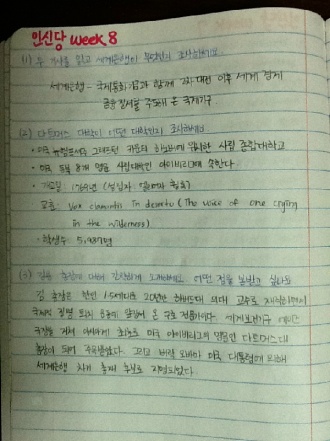 인신당 week 8
(1) 두 기사를 읽고 세계은행이 무엇인지 조사하세요
세계은행 - 국제통화기금과 함께 2차대전 이후 세계 경제
금융 질서를 주도해 온 국제기구.
(2) 다트머스 대학이 어떤 대학인지 조사하세요
· 미국 뉴햄프셔주 그래프턴 카운티 하노버에 위치한 사립 종합대학교
· 미국 동부 8개 명문 사립대학인 아이비리그에 속한다.
· 개교일 : 1769년 (설립자 : 엘리저 휠록)
교훈 : Vox clamantis in deserto (The voice of one crying
in the wilderness)
· 학생수 : 5,987명
(3) 김용 총장에 대해 간략하게 소개하세요. 어떤 점을 본받고 싶나요
김 총장은 한인 1.5세대로 20년간 하버드대 의대 교수로 재직하면서
국제적 질병 퇴치 운동에 앞장서 온 의료 전문가이다. 세계보건기구 에이즈
국장을 거쳐 아시아계 최초로 미국 아이비리그의 명문인 다트머스대
총장이 되어 주목받았다. 그리고 버락 오바마 미국 대통령에 의해
세계은행 차기 총재 후보로 지명되었다.